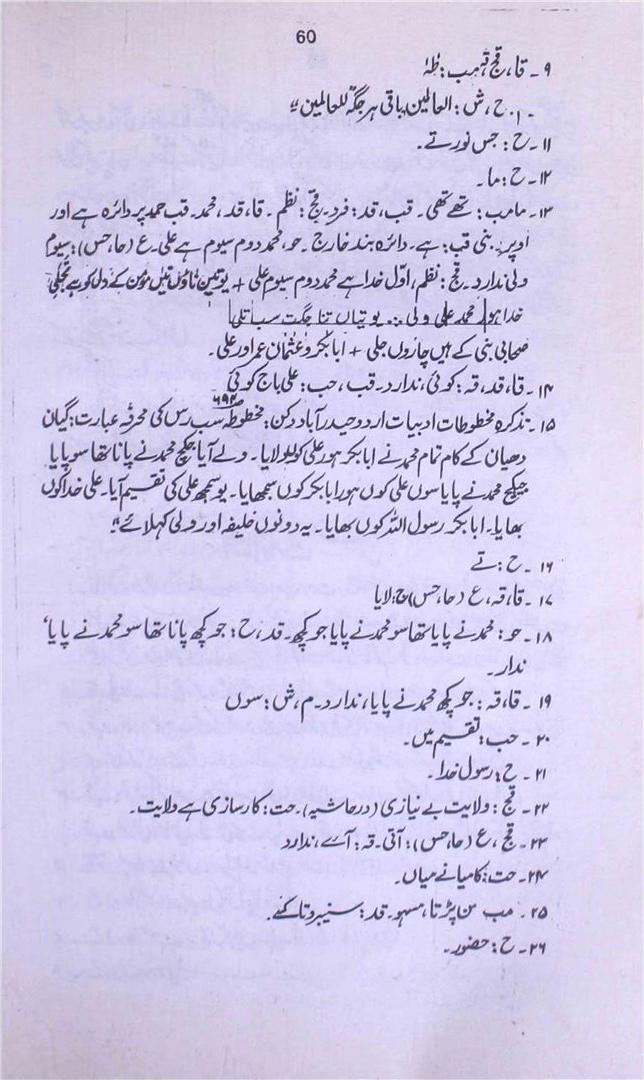 60
۹ ۔ قا، قج قہب : طٰہٰ
۱۰۔ ح، ش : العالمین باقی ہر جگہ للعالمین"
۱۱ ۔ ح : جس نور تے ۔
۱۲ ۔ ح : ما ۔
۱۳ ۔ ما مب : تھے تھی ۔ قب ، قد : فرد ۔ قج : نظم ۔ قا، قد، محمد ۔ قب حمد پر دائرہ ہے اور
اوپر ۔ بنی قب : ہے ۔ دائرہ بند خارج ۔ حو، محمد دوم سیوم ہے علی ۔ ع (حا، حس) : سیوم
ولی ندارد ۔ قج : نظم، اوّل خدا ہے محمد دوم سیوم علی + یو تین ناؤں تیں مومن کے دل کو ہے تجلّی
خدا ہوا محمد علی ولی .. یو تیاں تنا جگت سب تلی
صحابی بنی کے ہیں چاروں جلی + ابا بکر و عثمان عمر اور علی ۔
۱۴ ۔ قا، قد، قہ : کوئی، ندارد ۔ قب ، حب : علی باج کوئی
۱۵ ۔ تذکرہ مخطوطات ادبیات اردو حیدرآباد دکن : مخطوطہ ۶۹۲ سب رس کی محرفہ عبارت : گیان
دھیان کے کام تمام محمد نے ابا بکر ہور علی کو للو لایا ۔ ولے آیا جکچ محمد نے پانا تھا سو پایا
جیکچ محمد نے پایا سوں علی کوں ہور ابا بکر کوں سمجھایا ۔ یو سمجھ علی کی تقسیم آیا ۔ علی خدا کوں
بھایا ۔ ابا بکر رسول اللہ کوں بھایا ۔ یہ دونوں خلیفہ اور ولی کہلائے"
۱۶ ۔ ح : تے
۱۷ ۔ قا، قہ، ع (حا، حس) ج : لایا
۱۸ ۔ حو : محمد نے پایا تھا سو محمد نے پایا جو کچھ ۔ قد، ح : جو کچھ پانا تھا سو محمد نے پایا'
ندار ۔
۱۹ ۔ قا، قہ : جو کچھ محمد نے پایا، ندارد ۔ م، ش : سوں
۲۰ ۔ حب : تقسیم میں ۔
۲۱ ۔ ح : رسول خدا ۔
۲۲ ۔ قج : ولایت بے نیازی (در حاشیہ)۔ حت : کارسازی ہے ولایت ۔
۲۳ ۔ قج، ع (حا، حس) : آتی ۔ قہ : آے، ندارد
۲۴ ۔ حت : کامیانے میاں ۔
۲۵ ۔ مب من پڑتا، مسہو ۔ قد : سنپڑوتا کئے ۔
۲۶ ۔ ح : حضور ۔